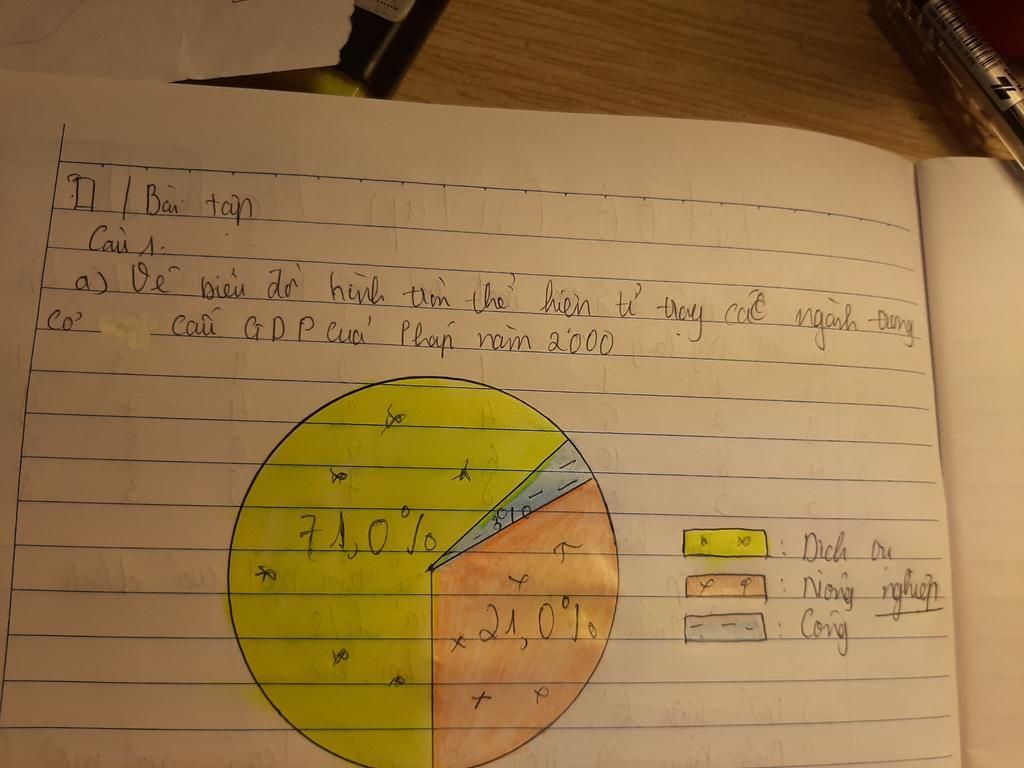 II / Bài tập
Câu 1.
a) Vẽ biểu đồ hình tròn thể hiện tỉ trọng các ngành trong
Cơ cấu GDP của Pháp năm 2000
71,0%
3%
21,0%
: Dịch vụ
: Nông nghiệp
: Công